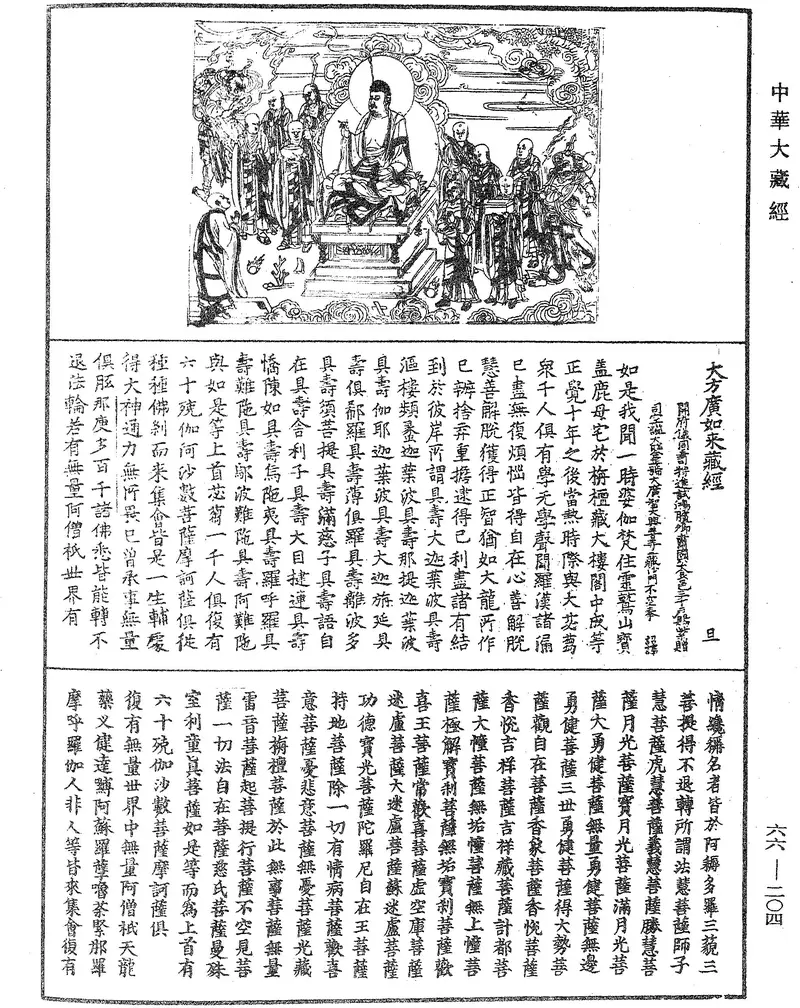 中華大藏經
大方廣如來藏經 旦
開府儀同三司特進試鴻臚卿肅國公食邑三千戶賜紫贈
司空謚大鑒正號大廣智大興善寺三藏沙門不空奉 詔譯
如是我聞一時婆伽梵住靈鷲山寶
蓋鹿母宅於栴檀藏大樓閣中成等
正覺十年之後當熱時際與大苾蒭
眾千人俱有學无學聲聞羅漢諸漏
已盡無復煩惱皆得自在心善解脫
慧善解脫獲得正智猶如大龍所作
已辦捨弃重擔逮得己利盡諸有結
到於彼岸所謂具壽大迦葉波具壽
漚樓頻螺迦葉波具壽那提迦葉波
具壽伽耶迦葉波具壽大迦旃延具
壽俱郗羅具壽薄俱羅具壽離波多
具壽須菩提具壽滿慈子具壽語自
在具壽舍利子具壽大目揵連具壽
憍陳如具壽烏陁夷具壽羅呼羅具
壽難陁具壽鄔波難陁具壽阿難陁
與如是等上首苾蒭一千人俱復有
六十殑伽河沙數菩薩摩訶薩俱從
種種佛剎而來集會皆是一生補處
得大神通力無所畏已曾承事無量
俱胝那庾多百千諸佛悉皆能轉不
退法輪若有無量阿僧祇世界有
情纔稱名者皆於阿耨多羅三藐三
菩提得不退轉所謂法慧菩薩師子
慧菩薩虎慧菩薩義慧菩薩勝慧菩
薩月光菩薩寶月光菩薩滿月光菩
薩大勇健菩薩無量勇健菩薩無邊
勇健菩薩三世勇健菩薩得大勢菩
薩觀自在菩薩香象菩薩香悅菩薩
香悅吉祥菩薩吉祥藏菩薩計都菩
薩大幢菩薩無垢幢菩薩無上幢菩
薩極解寶剎菩薩無垢寶剎菩薩歡
喜王菩薩常歡喜菩薩虛空庫菩薩
迷盧菩薩大迷盧菩薩蘇迷盧菩薩
功德寶光菩薩陀羅尼自在王菩薩
持地菩薩除一切有情病菩薩歡喜
意菩薩憂悲意菩薩無憂菩薩光藏
菩薩栴檀菩薩於此無爭菩薩無量
雷音菩薩起菩提行菩薩不空見菩
薩一切法自在菩薩慈氏菩薩曼殊
室利童真菩薩如是等而為上首有
六十殑伽沙數菩薩摩訶薩俱
復有無量世界中無量阿僧祇天龍
藥叉健達縛阿蘇羅孽嚕荼緊那羅
摩呼羅伽人非人等皆來集會復有
六六—二〇四